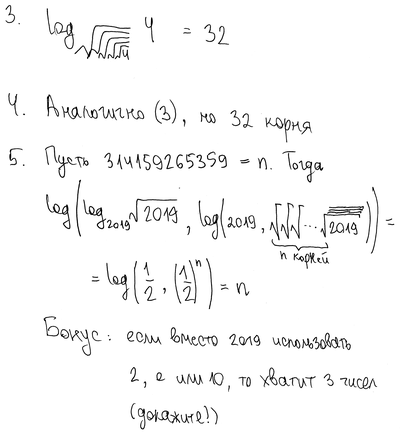 3. log_√√√√√4 4 = 32
4. Аналогично (3), но 32 корня
5. Пусть 314159265359 = n. Тогда
log(log_2019 √2019, log(2019, √√√...√2019)) =
n корней
= log(1/2, (1/2)^n) = n
Бонус: если вместо 2019 использовать
2, e или 10, то хватит 3 чисел
(докажите!)